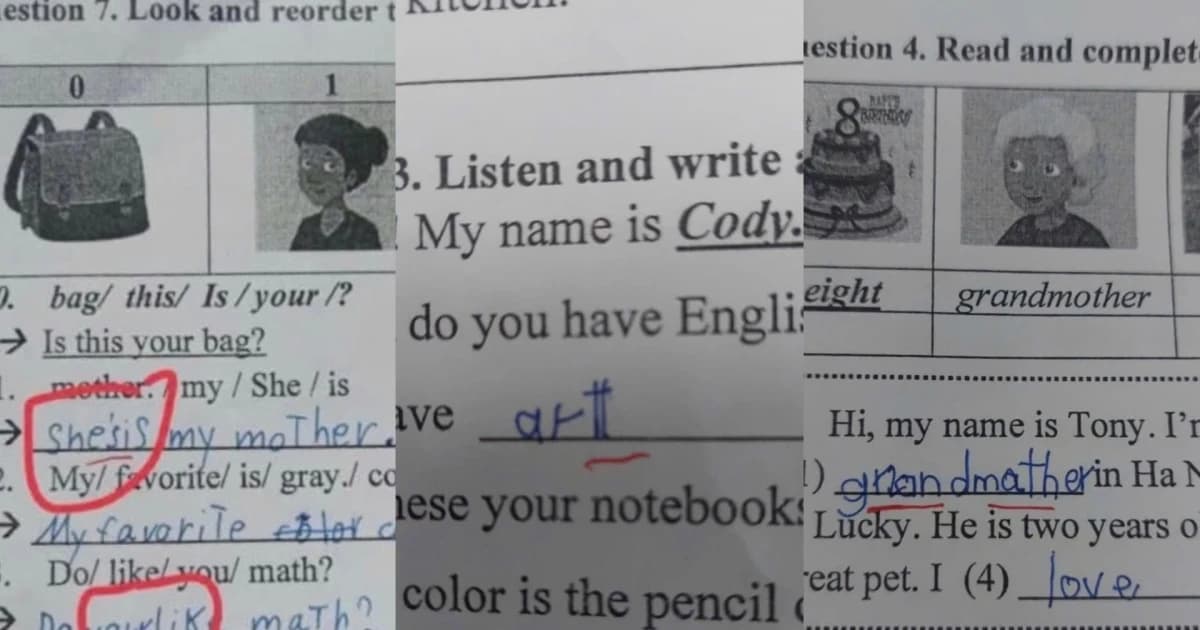 estion 7. Look and reorder t
0 1
0. bag/ this/ Is / your /?
→ Is this your bag?
1. mother. / my / She / is
→ She'sis my moTher.
2. My/ favorite/ is/ gray./ co
→ My favoriTe color c
3. Do/ like/ you/ math?
→ Do maTh?
3. Listen and write a
My name is Cody.
do you have Englis
ave artt
hese your notebooks
color is the pencil c
estion 4. Read and complet
8 HAPPY BIRTHDAY
eight grandmother
Hi, my name is Tony. I'm
1) grandmather in Ha N
Lucky. He is two years o
reat pet. I (4) love